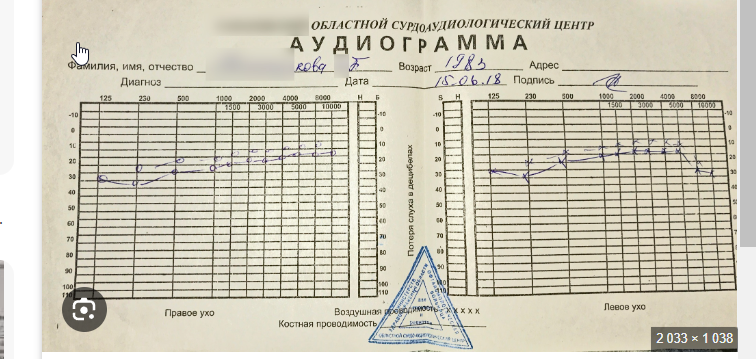 ОБЛАСТНОЙ СУРДОАУДИОЛОГИЧЕСКИЙ ЦЕНТР
АУДИОГРАММА
Фамилия, имя, отчество Возраст 1983 Адрес
Диагноз Дата 15.06.18 Подпись
125 230 500 1000 2000 4000 6000 Н Б Б Н 125 230 500 1000 2000 4000 6000
1500 3000 8000 10000 1500 3000 10000
-10 -10 -10 -10
0 0 0 0
10 10 10 10
20 20 20 20
30 30 30 30
40 40 40 40
50 50 50 50
60 60 60 60
70 70 70 70
80 80 80 80
90 90 90 90
100 100 100 100
110 110 110
Потеря слуха в децибелах
Правое ухо Воздушная проводимость x x x x x Левое ухо
Костная проводимость
2 033 × 1 038